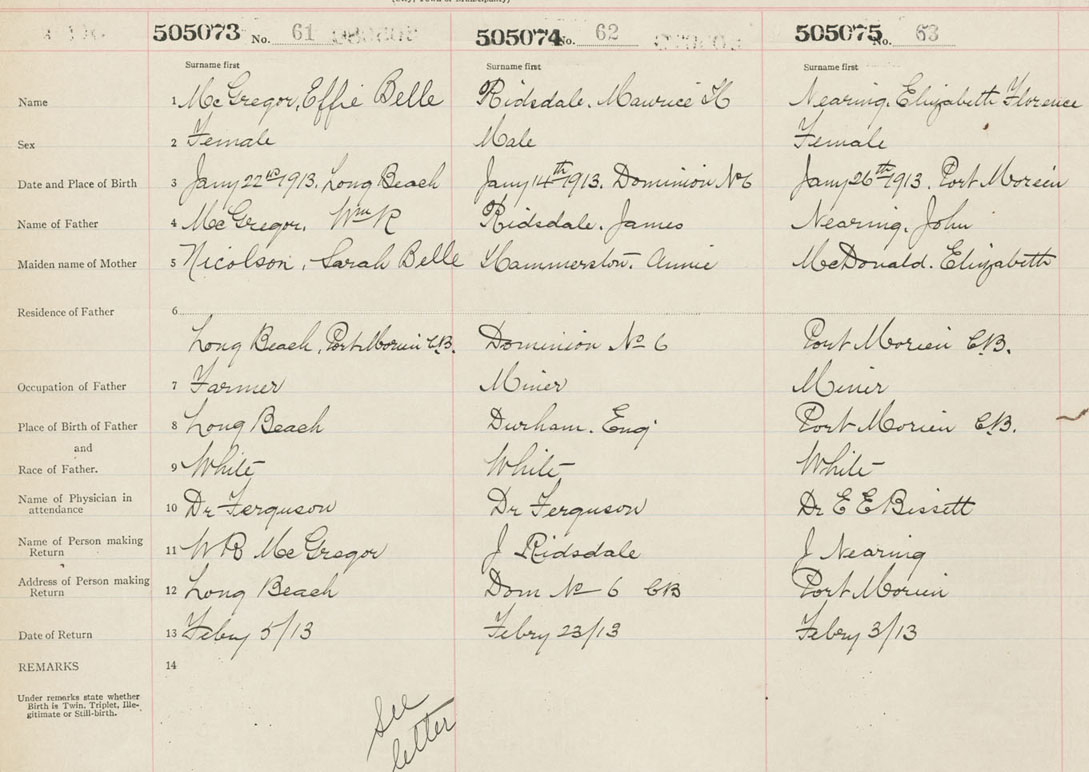 (City, Town or Municipality)
505073 No. 61 505074 No. 62 505075 No. 63
Surname first Surname first Surname first
Name 1 McGregor, Effie Belle Ridsdale, Maurice H Nearing, Elizabeth Florence
Sex 2 Female Male Female
Date and Place of Birth 3 Jany 22nd 1913. Long Beach Jany 14th 1913. Dominion No 6 Jany 26th 1913. Port Morien
Name of Father 4 McGregor, Wm R Ridsdale. James Nearing, John
Maiden name of Mother 5 Nicolson, Sarah Belle Hammerston. Annie McDonald. Elizabeth
Residence of Father 6
Long Beach, Port Morien C.B. Dominion No 6 Port Morien C.B.
Occupation of Father 7 Farmer Miner Miner
Place of Birth of Father 8 Long Beach Durham. Eng Port Morien C.B.
and
Race of Father. 9 White White White
Name of Physician in
attendance 10 Dr Ferguson Dr Ferguson Dr E E Bissett
Name of Person making
Return 11 W R McGregor J Ridsdale J Nearing
Address of Person making
Return 12 Long Beach Dom No 6 CB Port Morien
Date of Return 13 Febry 5/13 Febry 23/13 Febry 3/13
REMARKS 14
Under remarks state whether
Birth is Twin, Triplet, Ille-
gitimate or Still-birth.
See
letter